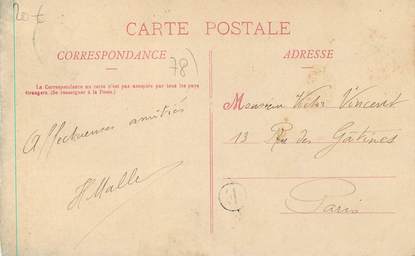 20 €
CARTE POSTALE
CORRESPONDANCE
78)
La Correspondance au recto n'est pas acceptée par tous les pays
étrangers. (Se renseigner à la Poste.)
Affectueuses amitiés
HMalle
ADRESSE
Monsieur Victor Vincent
13 Rue des Gatines
Paris